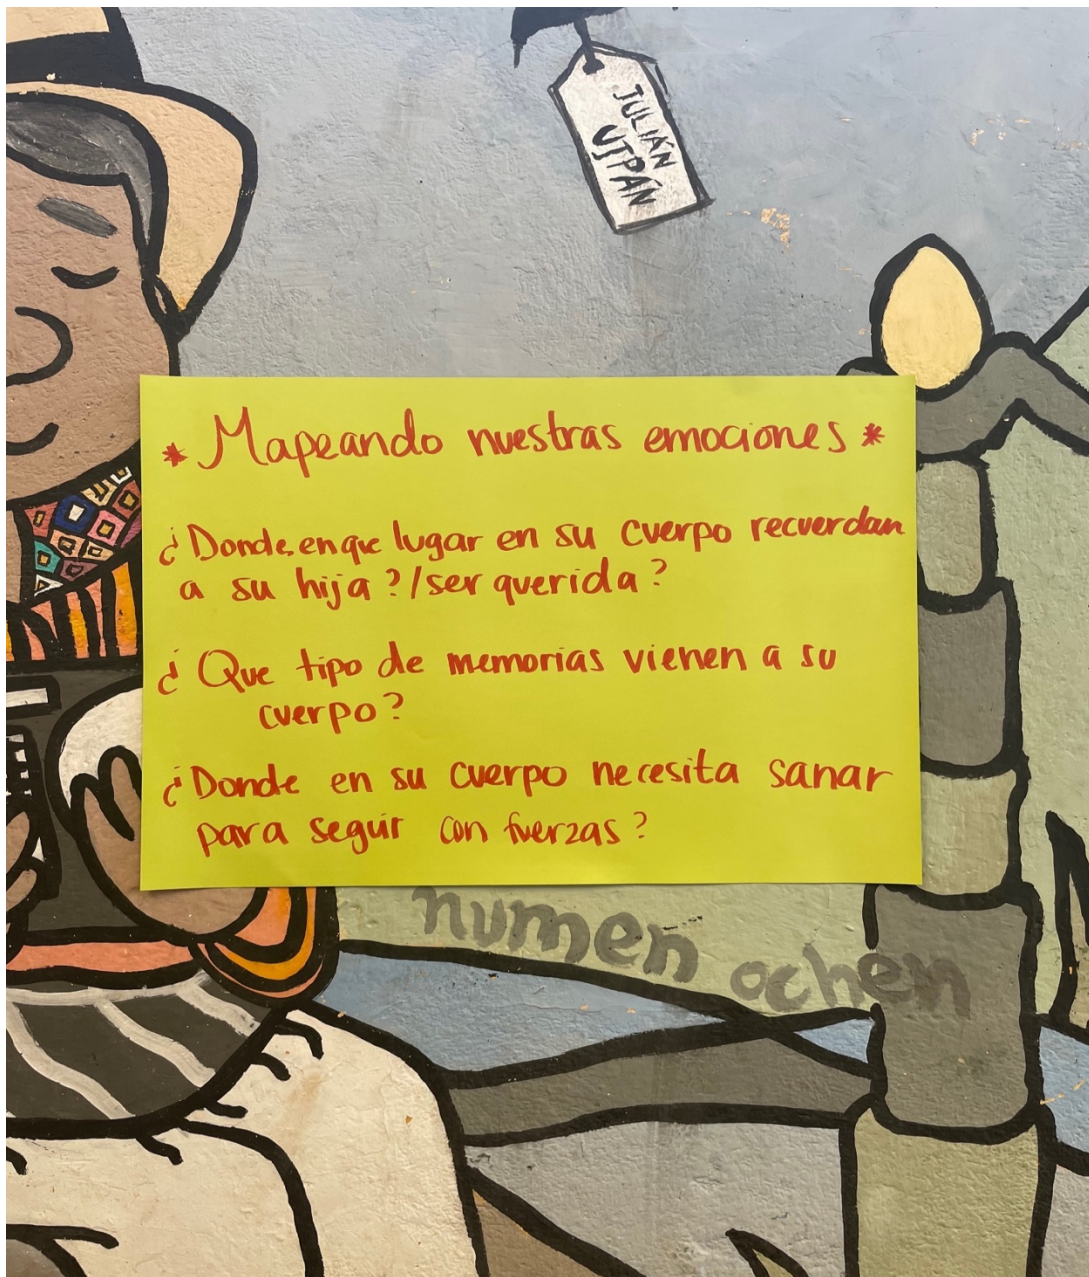 JULIÁN
UJPÁN
* Mapeando nuestras emociones *
¿Donde, en que lugar en su cuerpo recuerdan
a su hija?/ser querida?
¿Que tipo de memorias vienen a su
cuerpo?
¿Donde en su cuerpo necesita sanar
para seguir con fuerzas?
numen ochen